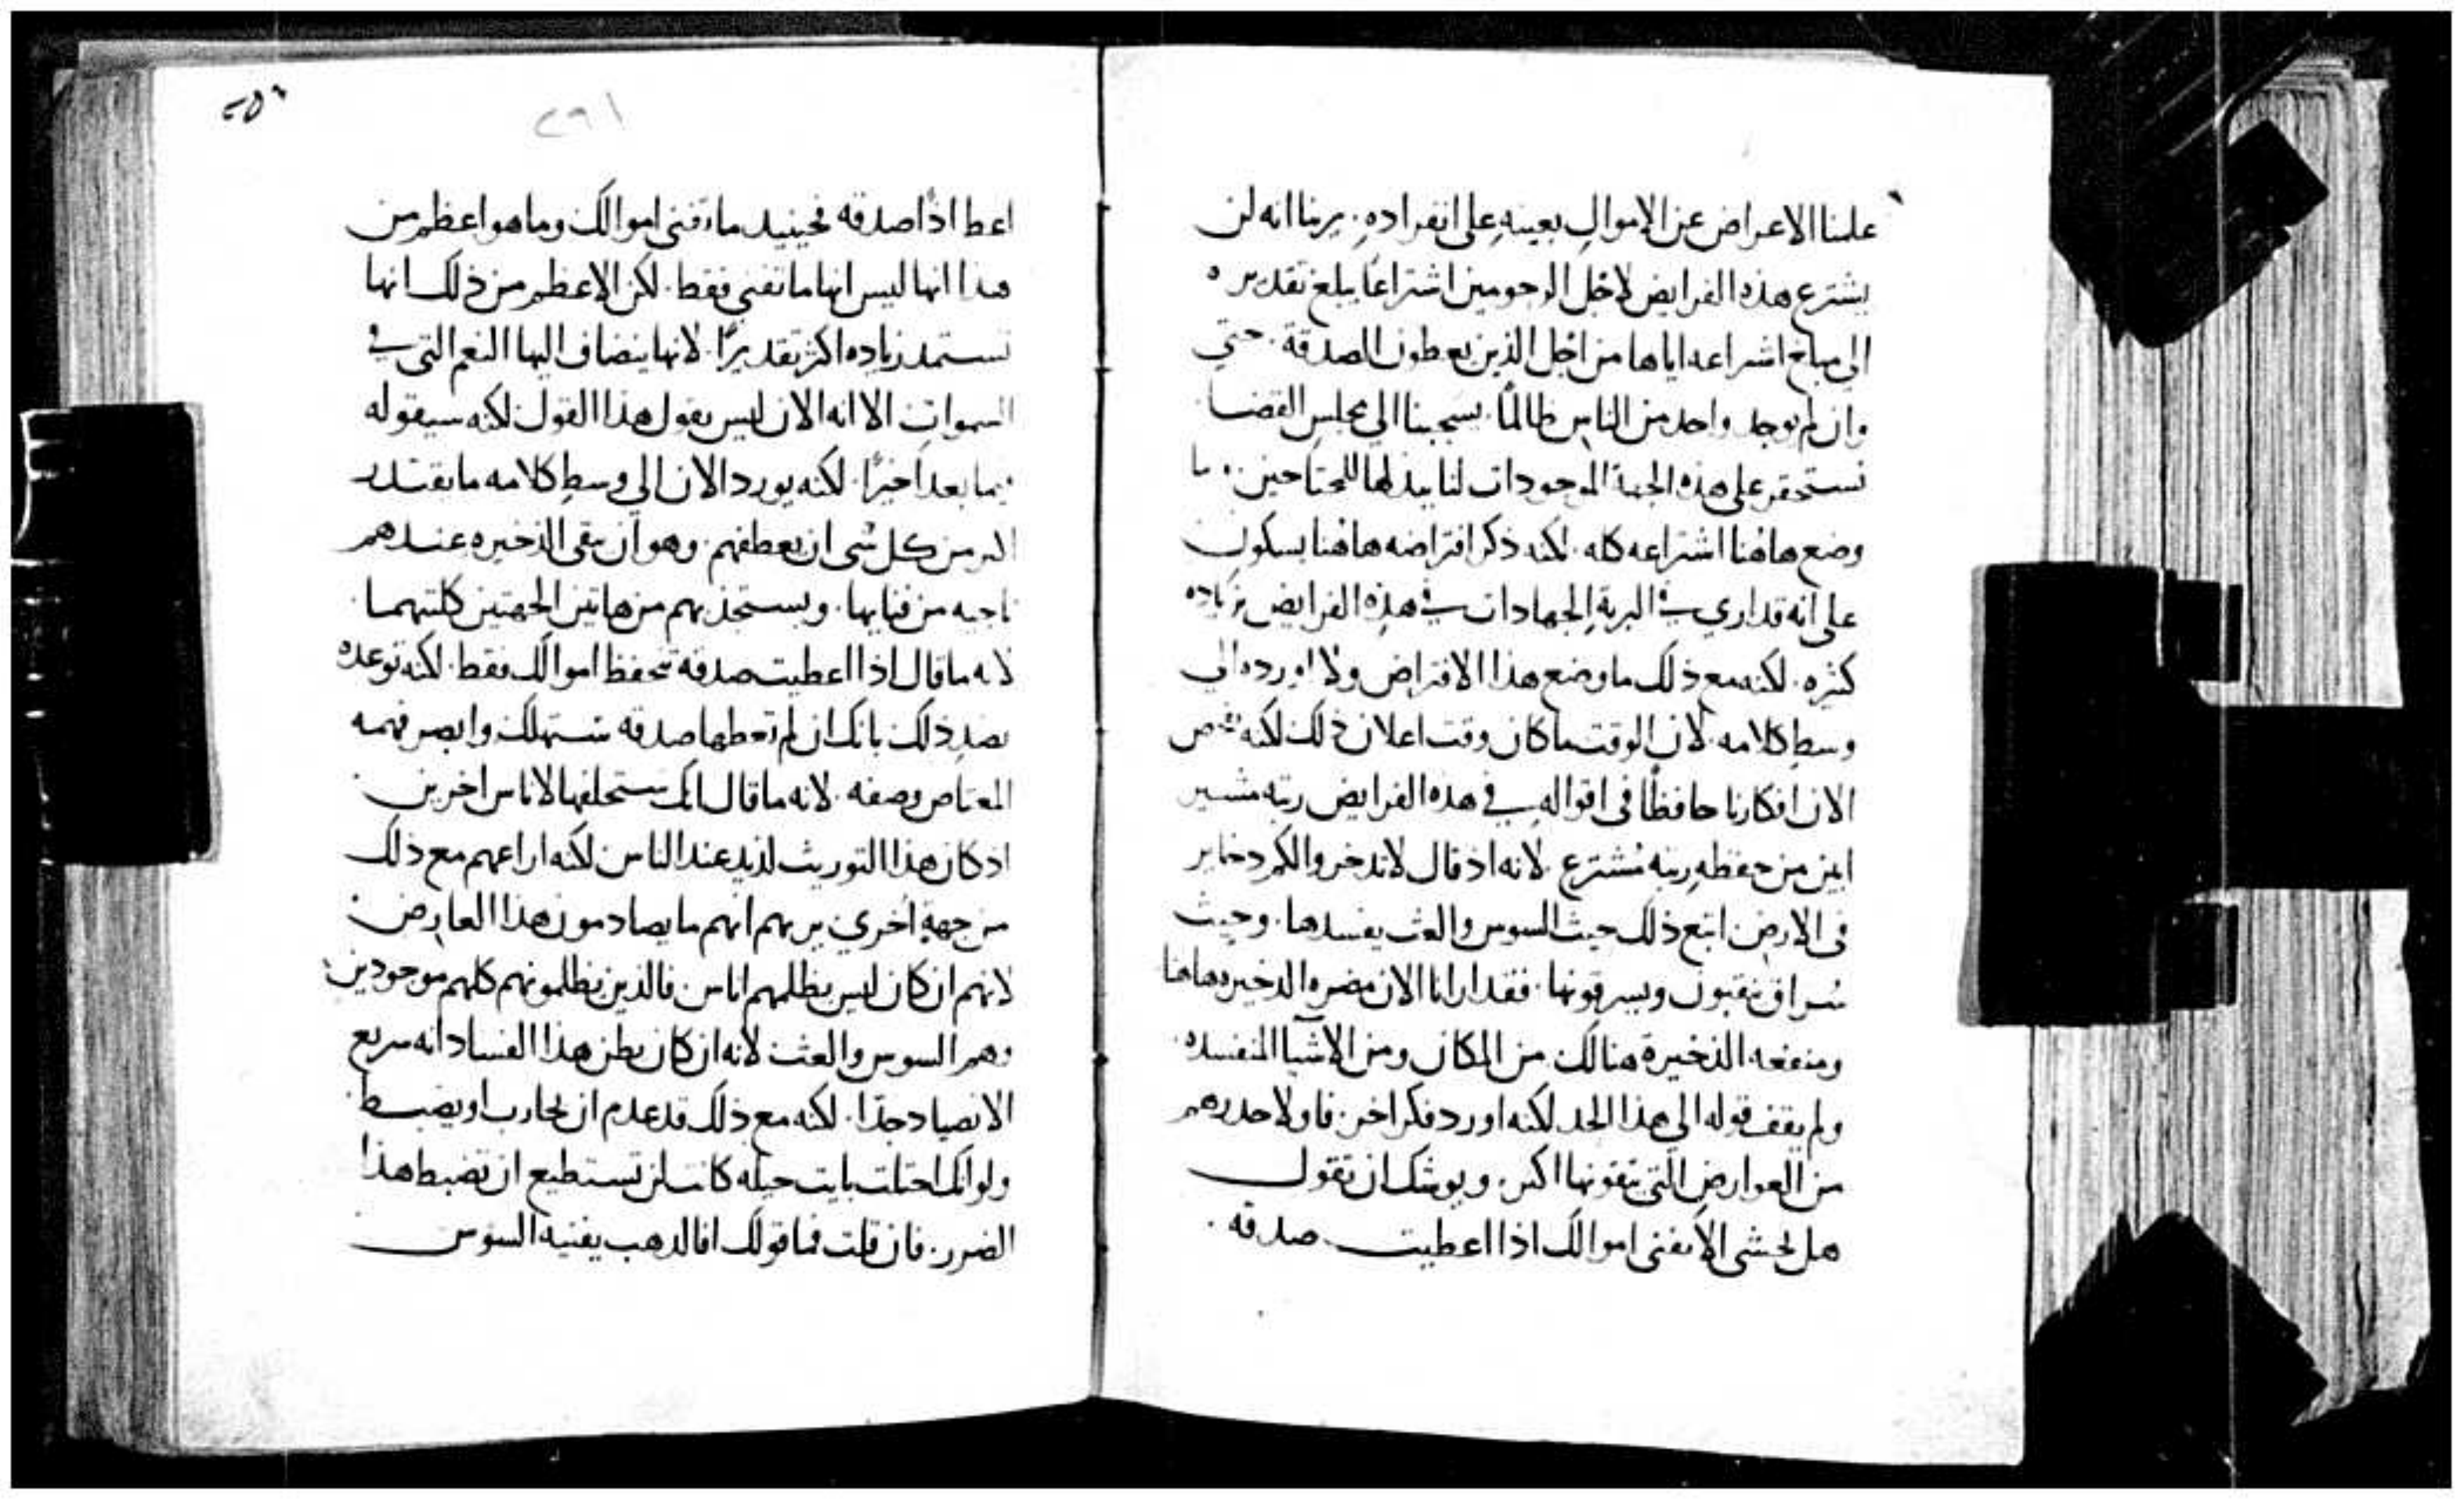 علينا الاعراض عن الاموال بعينه على انفراده. يرينا انه لن
يشترع هذه الفرايض لاجل المرحومين اشتراعًا يبلغ تقديره
الى مبلغ اشتراعه اياها من اجل الذين يعطون الصدقة. حتي
وان لم يوجد واحد من الناس ظالمًا. يسحبنا الي مجلس القضا
نستحقر على هذه الجهة الموجودات لنا ببذلها للمحتاجين. ما
وضع هاهُنا اشتراعه كله. لكنه ذكر افتراضه هاهُنا بسكون
على انه قد اري في البرية الجهادات في هذه الفرايض بزياده
كثيره. لكنه مع ذلك ما وضع هذا الافتراض ولا اورده الي
وسط كلامه. لان الوقت ما كان وقت اعلان ذلك لكنه فحص
الان افكارنا حافظًا في اقواله في هذه الفرايض رتبه مشير
ابين من حفظه رتبه مُشترع. لانه اذ قال لا تدخروا لكم دخاير
في الارض اتبع ذلك حيث السوس والعث يفسدها. وحيث
سُراق ينقبون ويسرقونها. فقد ارانا الان مضره الدخيره هاهنا
ومنفعه الذخيرة هنالك من المكان ومن الاشيا المفسده.
ولم يقف قوله الي هذا الحد لكنه اورد فكر اخر. فاولا حدرهم
من العوارض التي يتقونها اكثر. ويوشك ان تقول
هل تخشى الا تفنى اموالك اذا اعطيت صدقه.
٢٥٦
٢٩١
اعط اذًا صدقه فحينيد ما تفنى اموالك وما هو اعظم من
هذا انها ليس انها ما تفني فقط. لكن الاعظم من ذلك انها
تستمد زياده اكثر تقديرًا. لانها ينضاف اليها النعم التى في
السموات الا انه الان ليس يقول هذا القول لكنه سيقوله
فيما بعد اخيرًا. لكنه يورد الان الي وسط كلامه ما يقتدر
اكثر من كل شى ان يعطفهم. وهو ان تبقى الذخيره عندهم
ناجيه من فنايها. ويستجذبهم من هاتين الجهتين كلتيهما.
لانه ما قال اذا اعطيت صدقة تحفظ اموالك فقط. لكنه توعده
بضد ذلك بانك ان لم تعطها صدقه ستهلك وابصر فهمه
المعتاص وصفه. لانه ما قال انك ستخلفها لاناس اخرين.
اذ كان هذا التوريث لذيد عند الناس لكنه اراعهم مع ذلك
من جهةٍ اخري يريهم انهم ما يصادمون هذا العارض
لانهم ان كان ليس يظلمهم اناس. فالذين يظلمونهم كلهم موجودين
وهم السوس والعث لانه ان كان يظن هذا الفساد انه سريع
الانصياد جدًا. لكنه مع ذلك قد عدم ان يحارب او يضبط
ولو انك احتلت بايت حيله كانت لن تستطيع ان تضبط هذا
الضرر. فان قلت فما قولك افالدهب يفنيه السوس